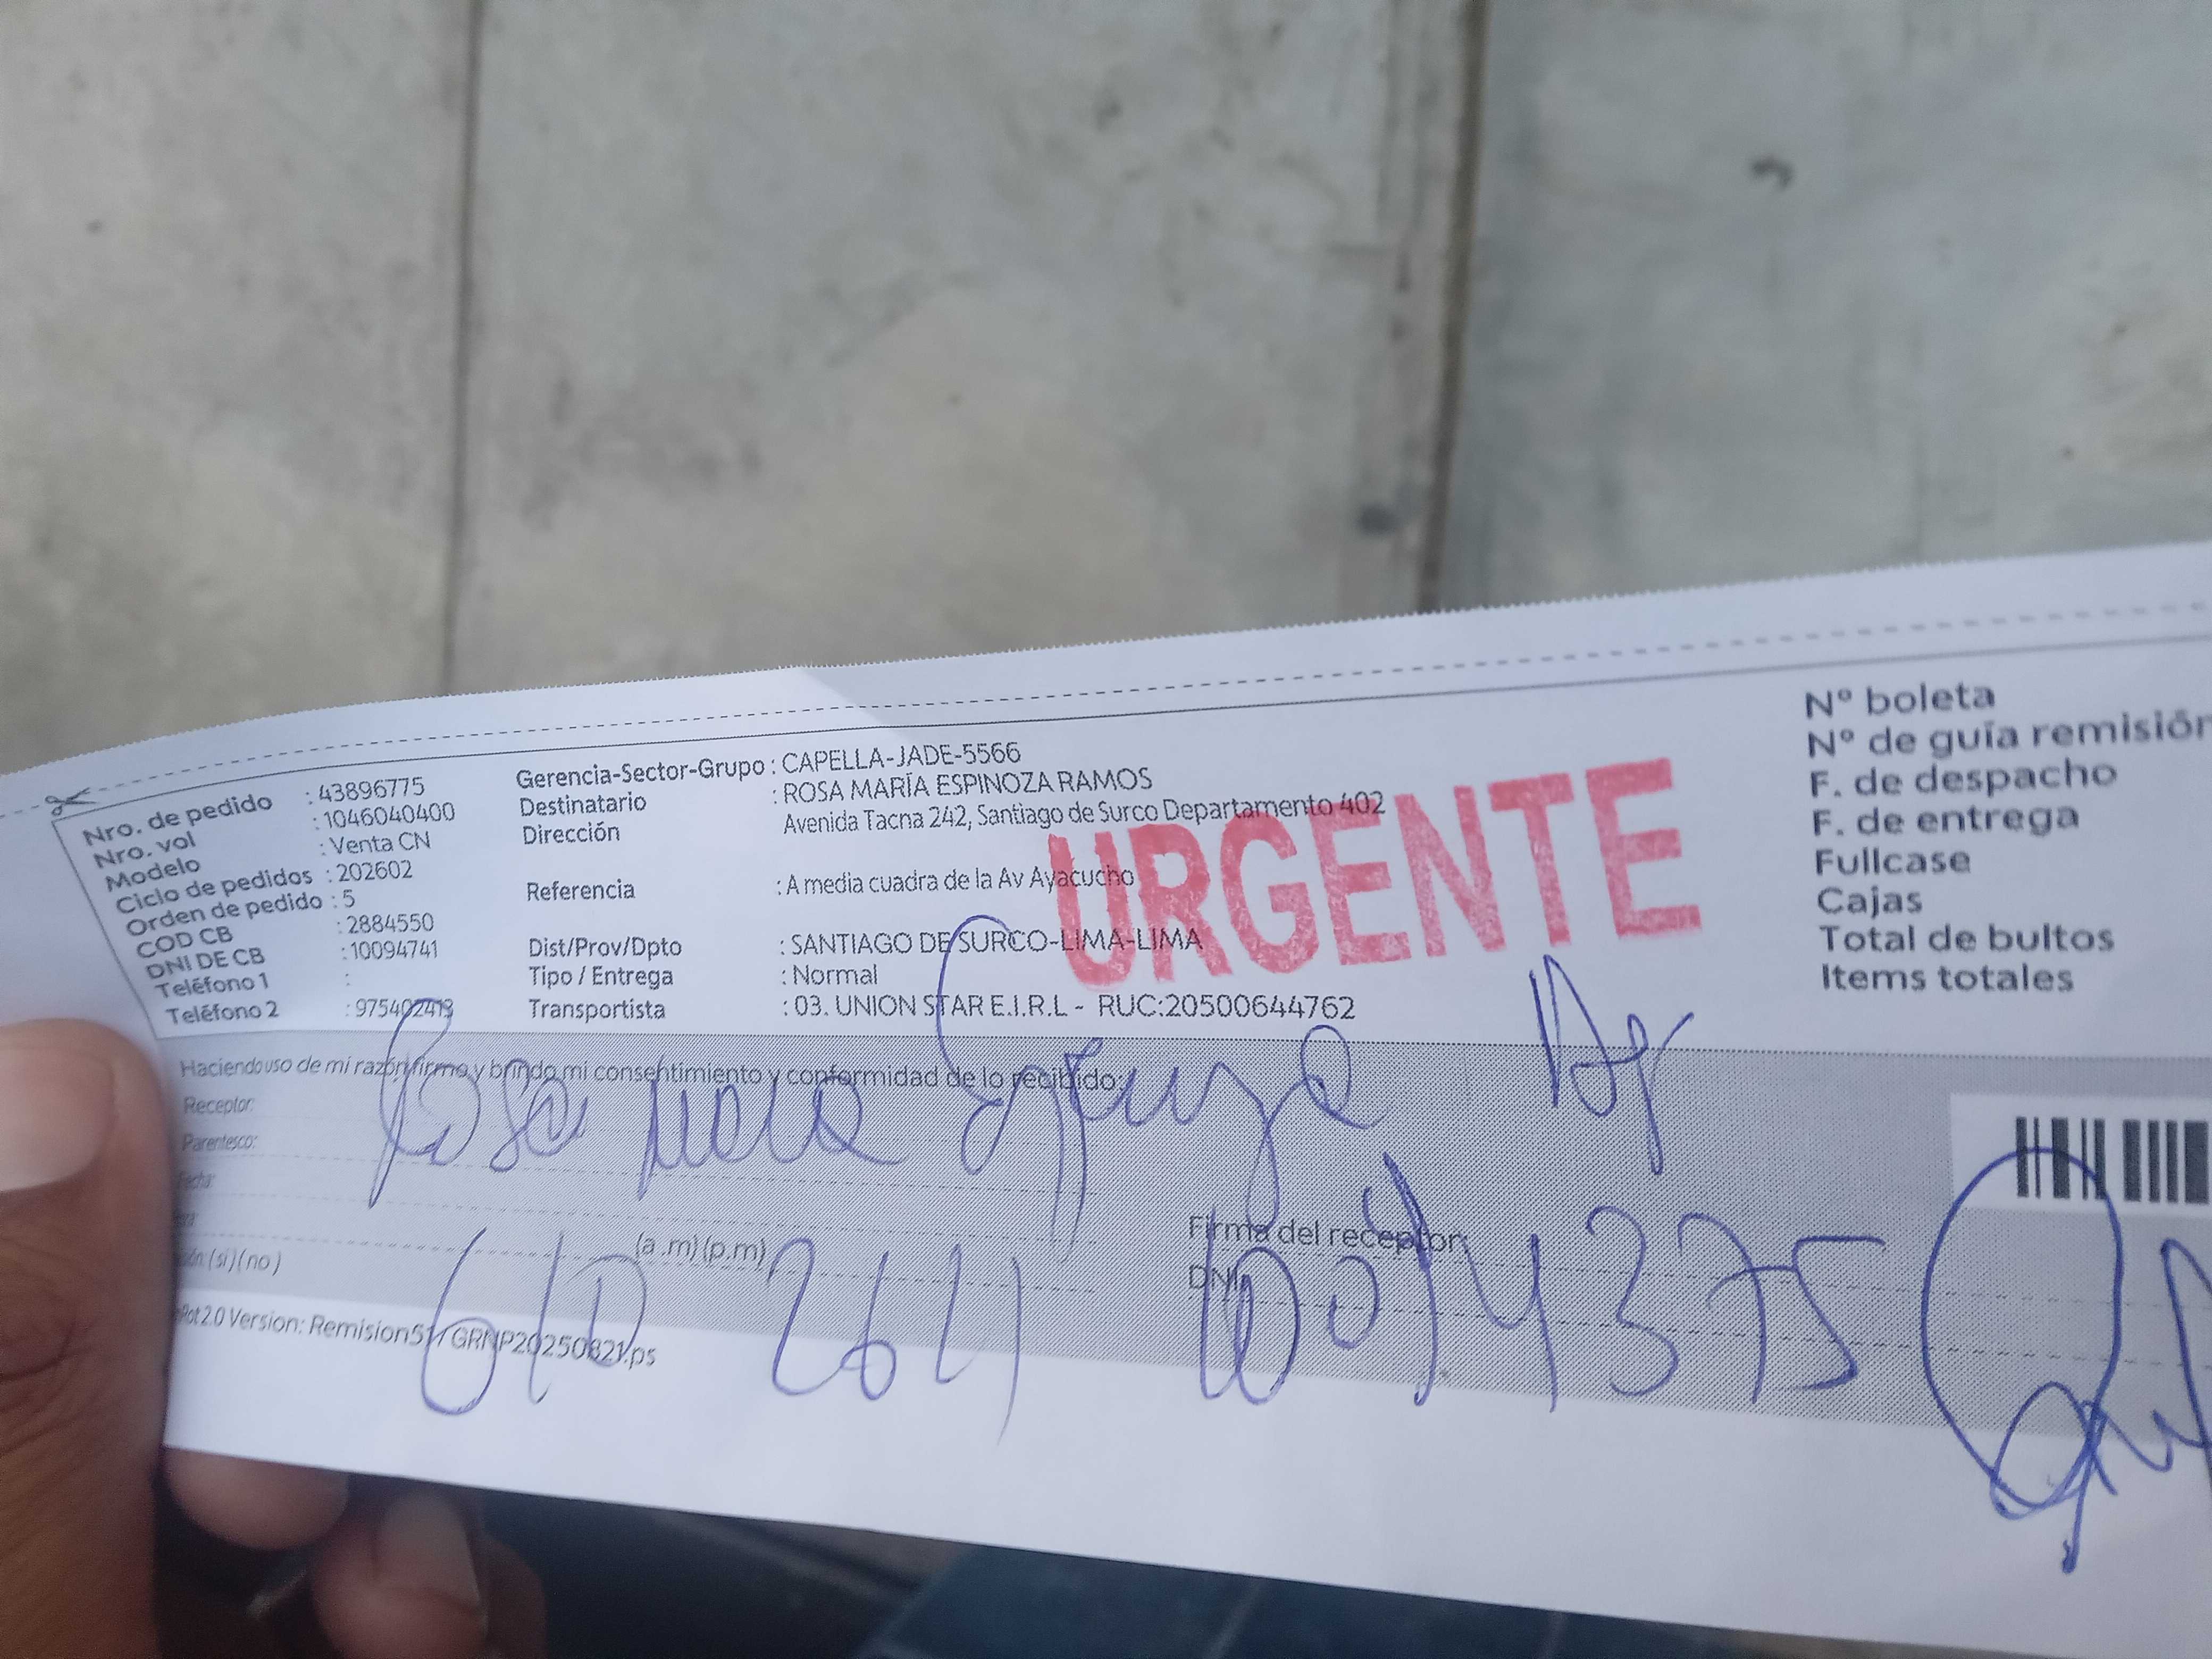 Nro. de pedido : 43896775
Nro. vol : 1046040400
Modelo : Venta CN
Ciclo de pedidos : 202602
Orden de pedido : 5
COD CB : 2884550
DNI DE CB : 10094741
Teléfono 1 :
Teléfono 2 : 975402413
Gerencia-Sector-Grupo : CAPELLA-JADE-5566
Destinatario : ROSA MARÍA ESPINOZA RAMOS
Dirección Avenida Tacna 242, Santiago de Surco Departamento 402
Referencia : A media cuadra de la Av Ayacucho
Dist/Prov/Dpto : SANTIAGO DE SURCO-LIMA-LIMA
Tipo / Entrega : Normal
Transportista : 03. UNION STAR E.I.R.L - RUC:20500644762
URGENTE
Nº boleta
Nº de guía remisión
F. de despacho
F. de entrega
Fullcase
Cajas
Total de bultos
Items totales
Haciendo uso de mi razón firmo y brindo mi consentimiento y conformidad de lo recibido:
Receptor: Rosa
Parentesco:
Fecha:
(a.m) (p.m)
(si) (no)
Firma del receptor:
DNI:
2.0 Version: Remision511GRNP20250821.ps